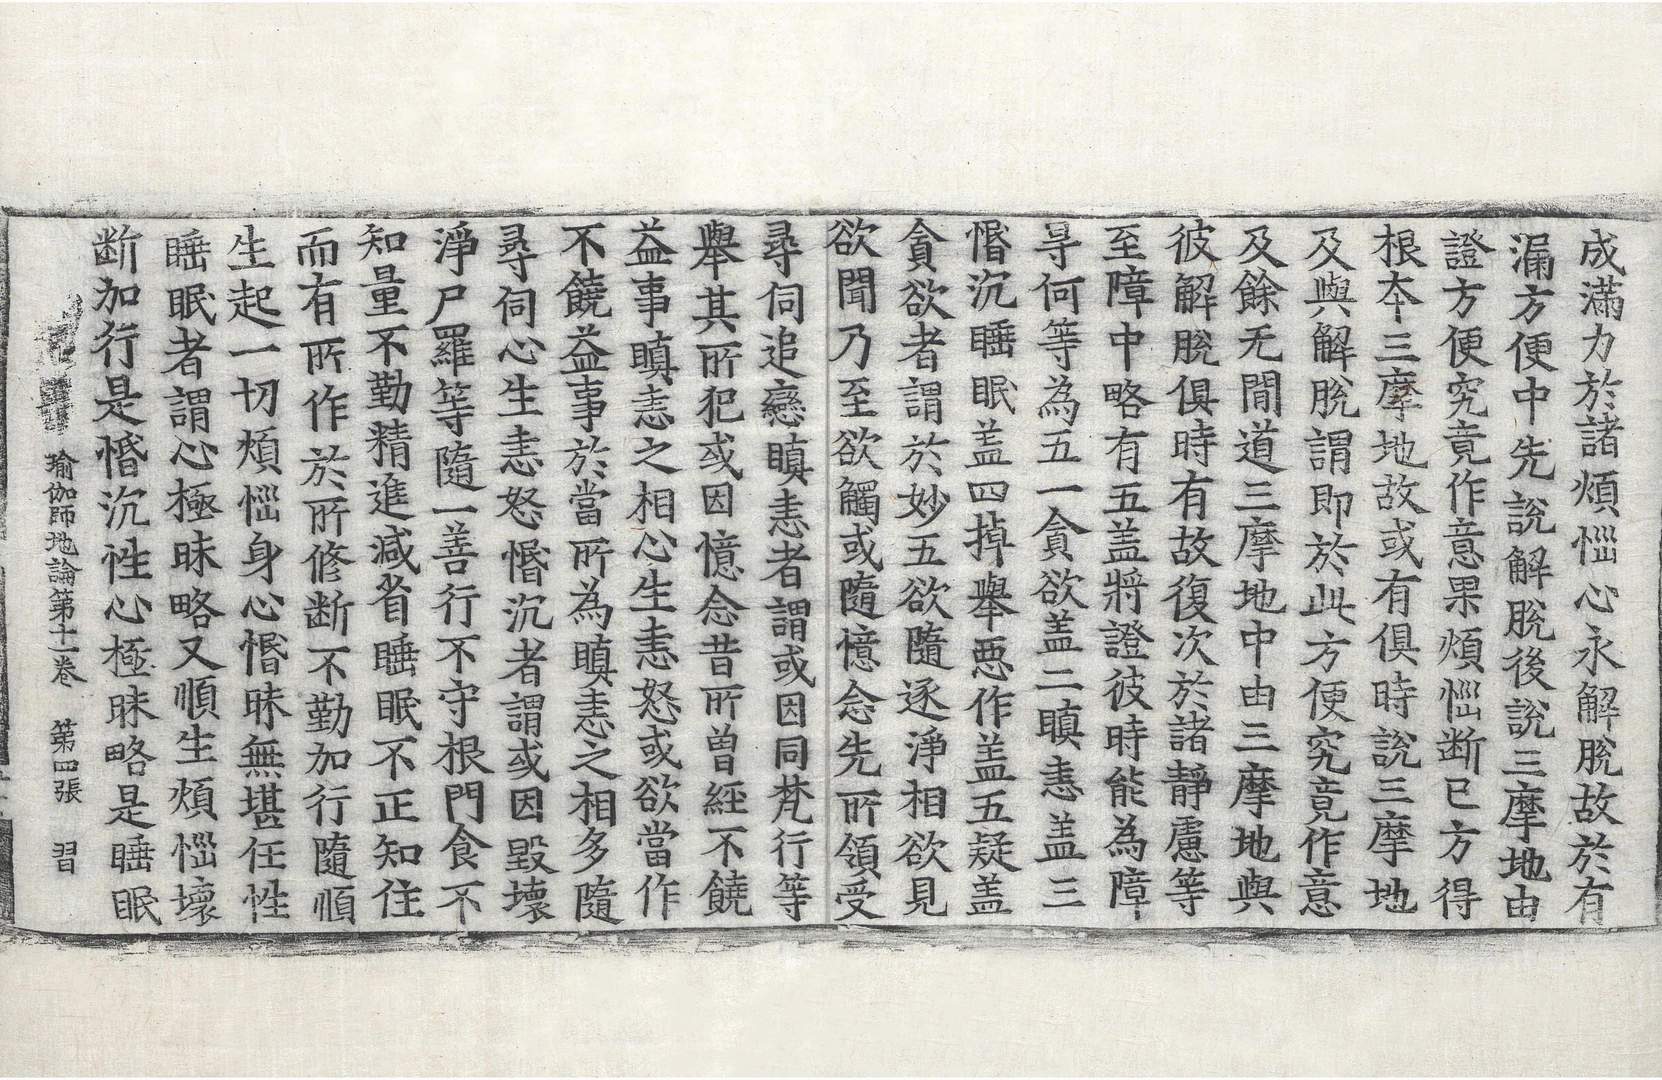 成滿力於諸煩惱心永解脫故於有
漏方便中先說解脫後說三摩地由
證方便究竟作意果煩惱断已方得
根本三摩地故或有俱時說三摩地
及與解脫謂即於此方便究竟作意
及餘无間道三摩地中由三摩地與
彼解脫俱時有故復次於諸靜慮等
至障中略有五盖將證彼時能為障
㝵何等為五一貪欲盖二瞋恚盖三
惛沉睡眠盖四掉舉惡作盖五疑盖
貪欲者謂於妙五欲隨逐淨相欲見
欲聞乃至欲觸或隨憶念先所領受
尋伺追戀瞋恚者謂或因同梵行等
舉其所犯或因憶念昔所曾經不饒
益事瞋恚之相心生恚怒或欲當作
不饒益事於當所為瞋恚之相多隨
尋伺心生恚怒惛沉者謂或因毀壞
淨尸羅等隨一善行不守根門食不
知量不勤精進減省睡眠不正知住
而有所作於所修断不勤加行隨順
生起一切煩惱身心惛昧無堪任性
睡眠者謂心極昧略又順生煩惱壞
断加行是惛沉性心極昧略是睡眠
瑜伽師地論第十一卷 第四張 習